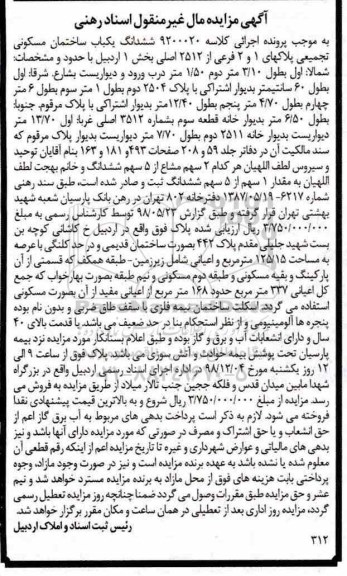 آگهی مزایده مال غیرمنقول اسناد رهنی
به موجب پرونده اجرائی کلاسه ۹۲۰۰۰۲۰ ششدانگ یکباب ساختمان مسکونی
تجمیعی پلاکهای ۱ و ۲ فرعی از ۲۵۱۲ اصلی بخش ۱ اردبیل با حدود و مشخصات:
شمالا: اول بطول ۳/۱۰ متر دوم ۱/۵۰ متر درب ورود و دیواریست بشارع. شرقا: اول
بطول ۶۰ سانتیمتر بدیوار اشتراکی با پلاک ۲۵۰۴ دوم بطول ۱ متر سوم بطول ۶ متر
چهارم بطول ۴/۷۰ متر پنجم بطول ۱۲/۴۰متر بدیوار اشتراکی با پلاک مرقوم. جنوبا:
بطول ۶/۵۰ متر بدیوار خانه قطعه سوم بشماره ۳۵۱۲ اصلی غربا: اول ۱۳/۷۰ متر
دیواریست بدیوار خانه ۲۵۱۱ دوم بطول ۷/۷۰ متر دیواریست بدیوار پلاک مرقوم که
سند مالکیت آن در دفاتر جلد ۵۹ و ۲۰۸ صفحات ۴۹۳و ۱۸۱ و ۱۶۳ بنام آقایان توحید
و سیروس لطف اللهیان هر کدام ۲ سهم مشاع از ۵ سهم ششدانگ و خانم بهجت لطف
اللهیان به مقدار ۱ سهم از ۵ سهم ششدانگ ثبت و صادر شده است، طبق سند رهنی
شماره ۶۲۱۷- ۱۳۸۷/۰۵/۱۹ دفترخانه ۸۰۲ تهران در رهن بانک پارسیان شعبه شهید
بهشتی تهران قرار گرفته و طبق گزارش ۹۸/۰۵/۲۳ توسط کارشناس رسمی به مبلغ
۳/۷۵۰/۰۰۰/۰۰۰ ریال ارزیابی شده پلاک فوق واقع در اردبیل خ کاشانی کوچه بن
بست شهید جلیلی مقدم پلاک ۴۴۲ بصورت ساختمان قدیمی و در حد کلنگی با عرصه
به مساحت ۱۲۵/۱۵ مترمربع و اعیانی شامل زیرزمین- طبقه همکف که قسمتی از آن
پارکینگ و بقیه مسکونی و طبقه دوم مسکونی و نیم طبقه بصورت بهارخواب که جمع
کل اعیانی ۳۳۷ متر مربع حدود ۱۶۸ متر مربع از اعیانی مفید از آن بصورت مسکونی
استفاده می گردد. اسکلت ساختمان نیمه فلزی با سقف طاق ضربی و بدون نام بوده
پنجره ها آلومینیومی و از نظر استحکام بنا در حد ضعیف می باشد. با قدمت بالای ۴۰
سال و دارای انشعابات آب و برق و گاز بوده و طبق اعلام بستانکار مورد مزایده نزد بیمه
پارسیان تحت پوشش بیمه حوادث و آتش سوزی می باشد. پلاک فوق از ساعت ۹ الی
۱۲ روز یکشنبه مورخ ۹۸/۱۲/۰۴ در اداره اجرای اسناد رسمی اردبیل واقع در بزرگراه
شهدا مابین میدان قدس و فلکه ججین جنب تالار میلاد از طریق مزایده به فروش می
رسد. مزایده از مبلغ ۳/۷۵۰/۰۰۰/۰۰۰ ریال شروع و به بالاترین قیمت پیشنهادی نقدا
فروخته می شود. لازم به ذکر است پرداخت بدهی های مربوط به آب برق گاز اعم از
حق انشعاب و یا حق اشتراک و مصرف در صورتی که مورد مزایده دارای آنها باشد و نیز
بدهی های مالیاتی و عوارض شهرداری و غیره تا تاریخ مزایده اعم از اینکه رقم قطعی آن
معلوم شده یا نشده باشد به عهده برنده مزایده است و نیز در صورت وجود مازاد، وجوه
پرداختی بابت هزینه های فوق از محل مازاد به برنده مزایده مسترد خواهد شد و نیم
عشر و حق مزایده طبق مقررات وصول می گردد ضمنا چنانچه روز مزایده تعطیل رسمی
گردد، مزایده روز اداری بعد از تعطیلی در همان ساعت و مکان مقرر برگزار خواهد شد.
رئیس ثبت اسناد و املاک اردبیل
۳۱۲